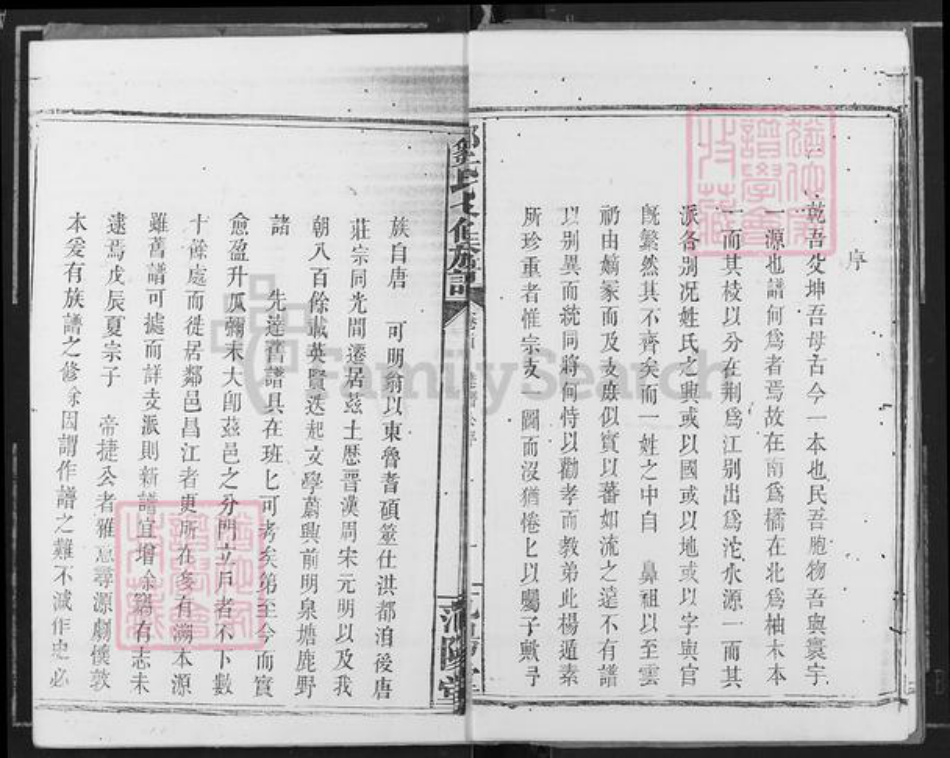 序
乾吾父坤吾母古今一本也民吾胞物吾與寰宇
一源也譜何爲者焉故在南爲橘在北爲柚木本
一而其棱以分在荆爲江别出爲沱水源一而其
派各别况姓氏之與或以國或以地或以字與官
旣繁然其不齊矣而一姓之中自 鼻祖以至雲
礽由嫡冢而及支庶似實以蕃如流之遠不有譜
以别異而莼同將何恃以勸孝而教弟此楊遁素
所珍重者惟宗支一圖而沒猶惓匕以囑子歟
氏 族譜
堂
族自唐 可明翁以東魯耆碩筮仕洪都洎後唐
莊宗同光間遷居茲土歷晋漢周宋元明以及我
朝八百餘載英賢迭起文學蔚興前明泉塘鹿野
諸 先達舊譜具在班匕可考矣第至今而實
愈盈升瓜彌末大卽茲邑之分門立戶者不下數
十餘處而徙居鄰邑昌江者更所在多有溯本源
雖舊譜可據而詳支派則新譜宜增余竊有志未
逮焉戊辰夏宗子 帝捷公者雅意尋源劇懷敦
本爰有族譜之修余因謂作譜之難不減作史必
FamilySearch
譜學會
收藏
譜學會
收藏